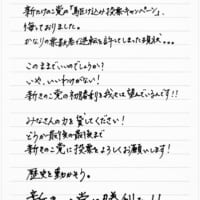 新たけのこ党の「駆け込み投票キャンペーン」、
侮っておりました。
かなりの票数差で逆転を許してしまった現状…
このままでいいのでしょうか?
いや、いいわけがない!
新きのこ党の初勝利を我々は望んでいるんです!!
みなさんの力を貸してください!
どうか最後の最後まで
新きのこ党に投票をよろしくお願いします!
歴史を動かそう。